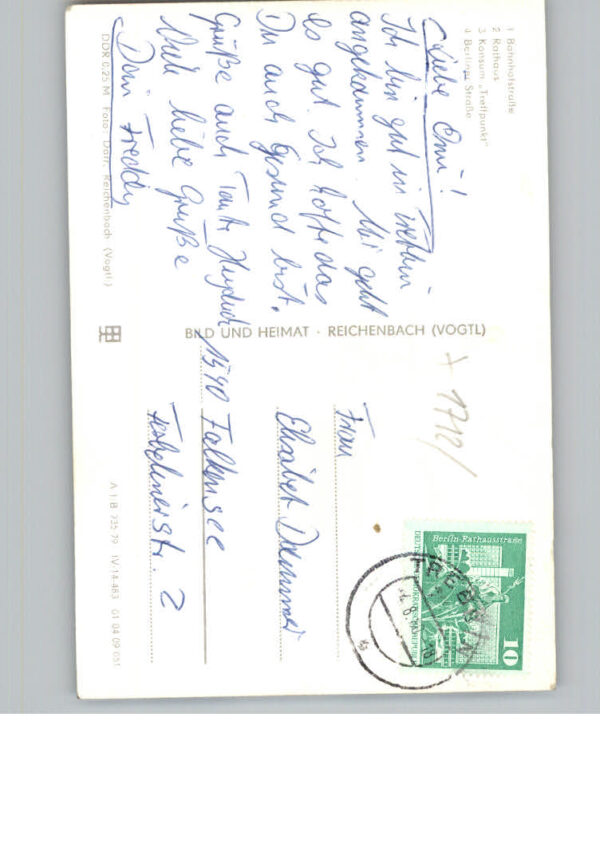 1 Bahnhofstraße
2 Rathaus
3 Konsum „Treffpunkt"
4 Berliner Straße
Liebe Omi!
Ich bin gut in Trebbin
angekommen. Mir geht
es gut. Ich hoffe das
Du auch gesund bist.
Grüße auch Tante
Viele liebe Grüße
Dein Freddy
DDR 0,25 M Foto: Darr, Reichenbach (Vogtl)
BILD UND HEIMAT · REICHENBACH (VOGTL)
+ 1712/
Frau
Elisabet
1540 Falkensee
2
A 1 B 235 79 IV-14-483 01 04 09 051
Berlin-Rathausstraße
10
TREBBIN